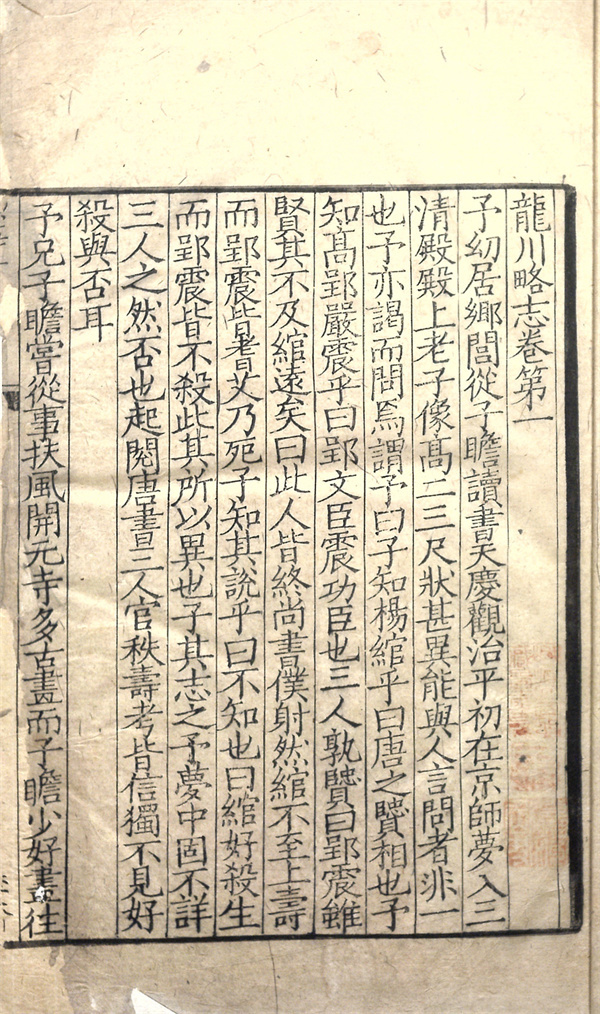 龍川略志卷第一
予幼居鄉閭從子瞻讀書天慶觀治平初在京師夢入三
清殿殿上老子像高二三尺狀甚異能與人言問者非一
也予亦謁而問焉謂予曰子知楊綰乎曰唐之賢相也子
知高郢嚴震乎曰郢文臣震功臣也三人孰賢曰郢震雖
賢其不及綰遠矣曰此人皆終尚書僕射然綰不至上壽
而郢震皆耆艾乃死子知其說乎曰不知也曰綰好殺生
而郢震皆不殺此其所以異也子其志之予夢中固不詳
三人之然否也起閱唐書三人官秩壽考皆信獨不見好
殺與否耳
予兄子瞻嘗從事扶風開元寺多古畫而子瞻少好畫往